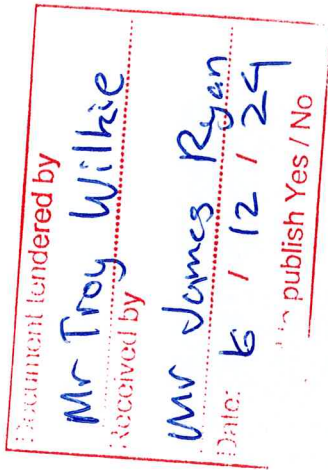 Document tendered by
Mr Troy Wilkie
Received by
Mr James Ryan
Date: 6 / 12 / 24
publish Yes / No